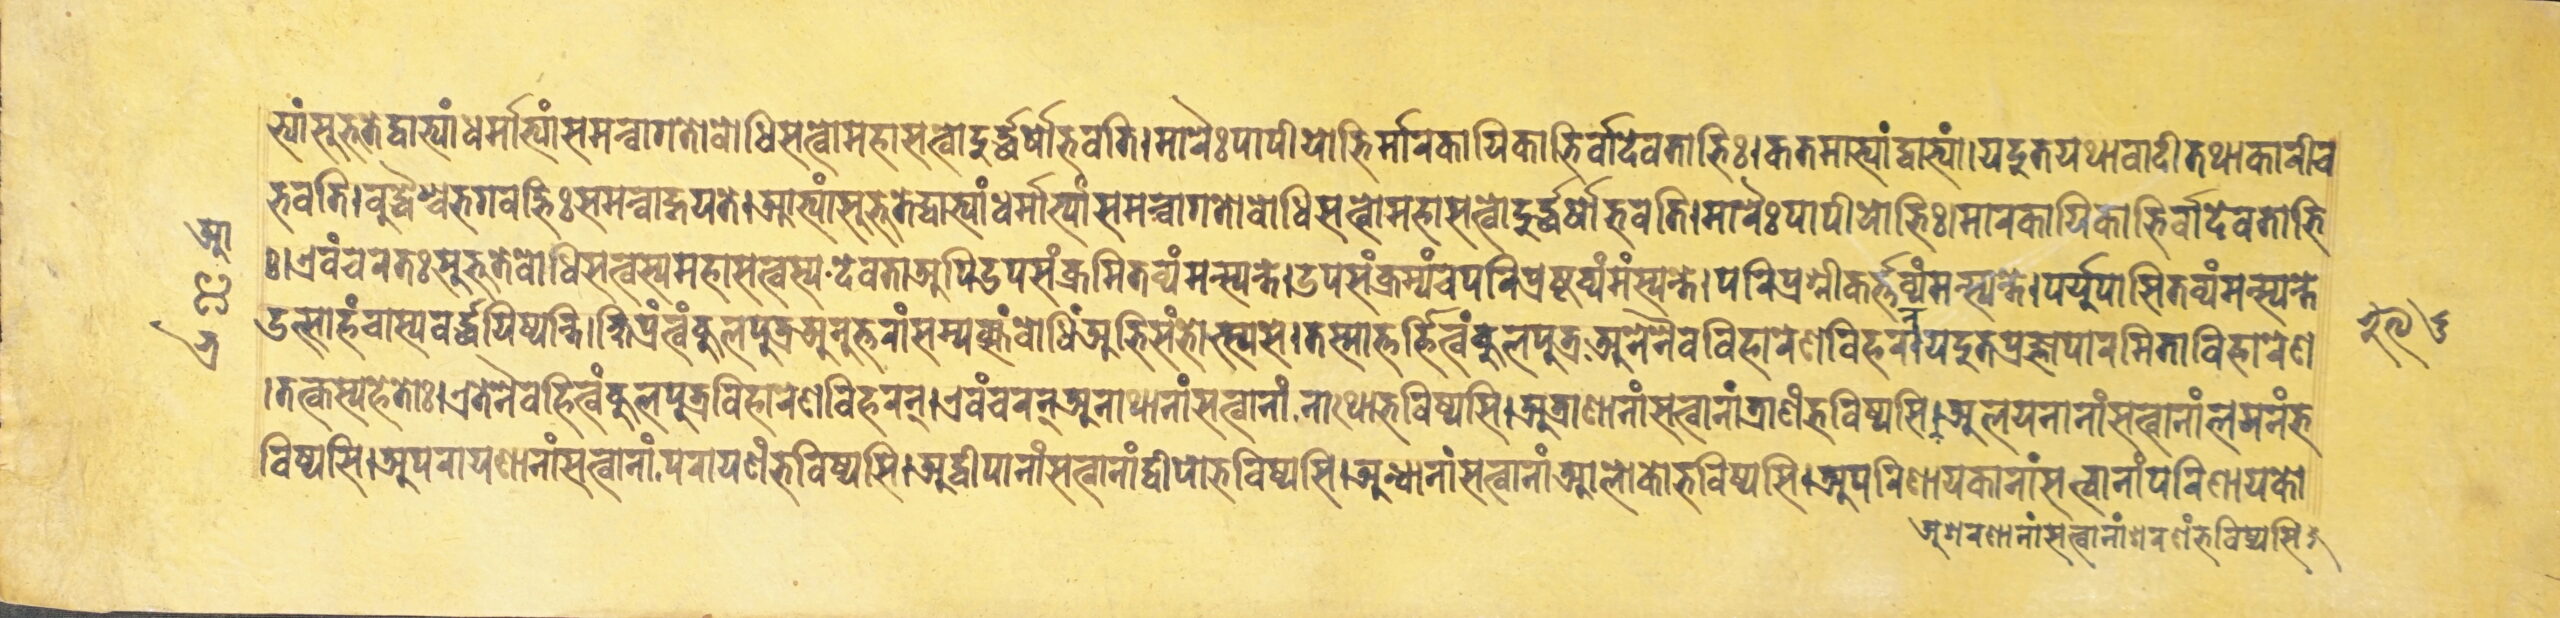 भ्यां सुभूते द्वाभ्यां धर्माभ्यां समन्वागतो बोधिसत्त्वो महासत्त्वो दुर्द्धर्षो भवति । मारैः पापीयोभिर्मारकायिकाभिर्वा देवताभिः । कतमाभ्यां द्वाभ्यां । यदुत यथावादी तथाकारी च
भवति । बुद्धैश्च भगवद्भिः समन्वाह्रियते । आभ्यां सुभूते द्वाभ्यां धर्माभ्यां समन्वागतो बोधिसत्त्वो महासत्त्वो दुर्द्धर्षो भवति । मारैः पापीयोभिः । मारकायिकाभिर्वा देवताभि
ः । एवं चरतः सुभूते बोधिसत्त्वस्य महासत्त्वस्य देवता अपि उपसंक्रमितव्यं मन्स्यन्ते । उपसंक्रम्यं च परिप्रष्टव्यं मंस्यन्ते । परिप्रश्नीकर्त्तव्यं मन्स्यन्ते । पर्युपासितव्यं मन्स्यन्ते
उत्साहं चास्य वर्द्धयिष्यन्ति । क्षिप्रं त्वं कुलपुत्र अनुत्तरां सम्यक्संबोधिं अभिसंभोत्स्यसे । तस्मात्तर्हि त्वं कुलपुत्र अनेनैव विहारेण विहरन् । यदुत प्रज्ञापारमिताविहारेण
। तत्कस्य हेतोः । एतेनैव हि त्वं कुलपुत्र विहारेण विहरन् । एवं चरन् अनाथानां सत्त्वानां नाथो भविष्यसि । अत्राणानां सत्त्वानां त्राणं भविष्यसि । अलयनानां सत्त्वानां लयनं भ
विष्यसि । अपरायणानां सत्त्वानां परायणं भविष्यसि । अद्वीपानां सत्त्वानां द्वीपो भविष्यसि । अन्धानां सत्त्वानां आलोको भविष्यसि । अपरिणायकानां सत्त्वानां परिणायको
अशरणानां सत्त्वानां शरणं भविष्यसि